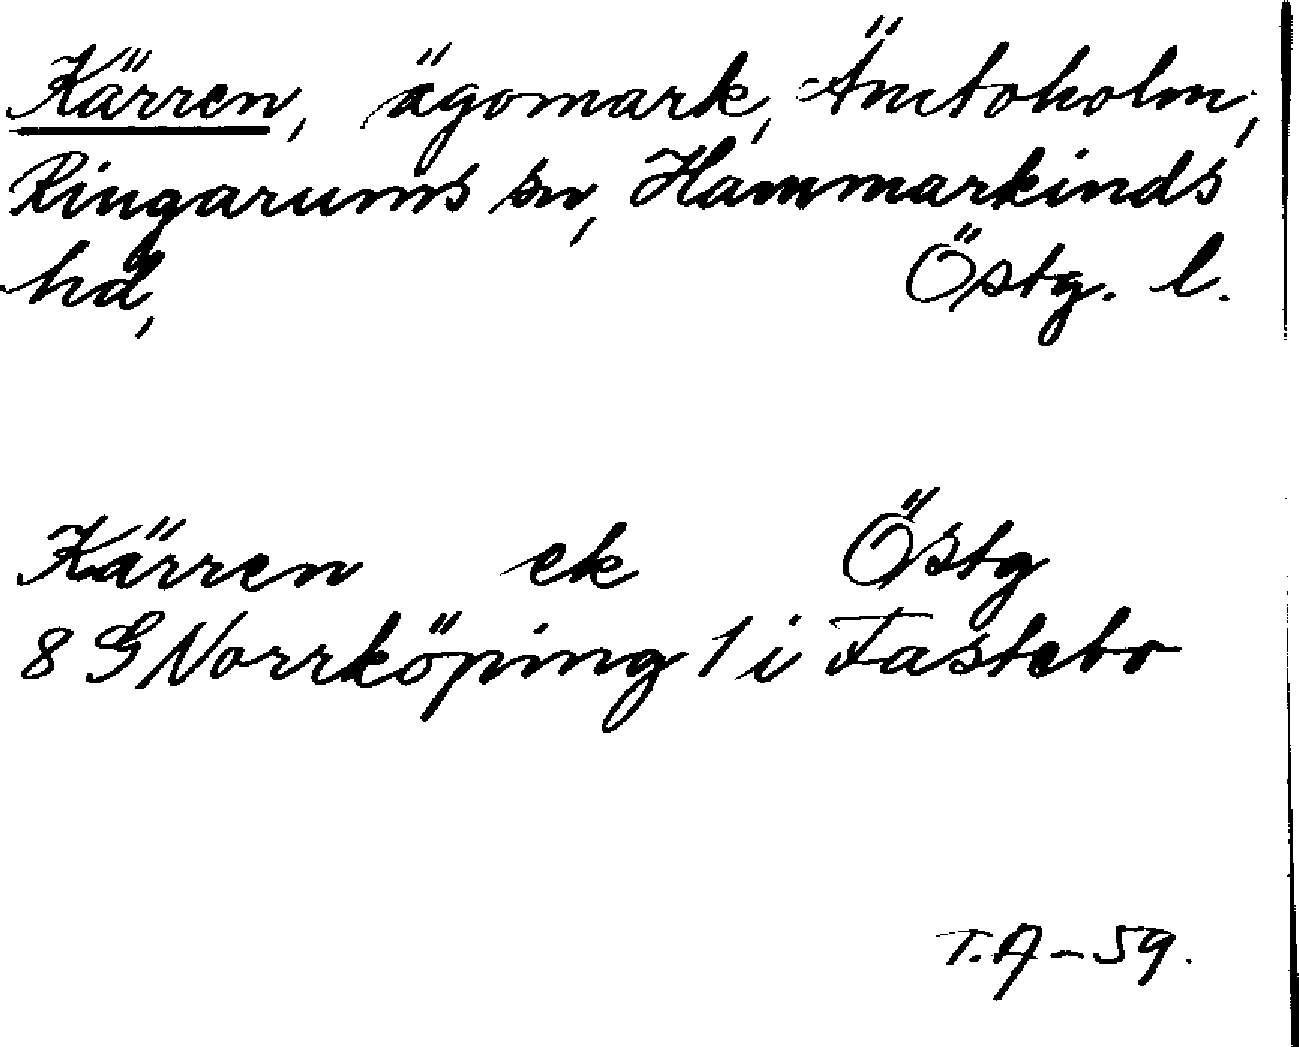 Kärren, ägomark, Ämtöholm,
Ringarums sn, Hammarkinds
hd, Östg. l.
Kärren ek Östg
8 G Norrköping 1 i Fastebo
T.A-59.